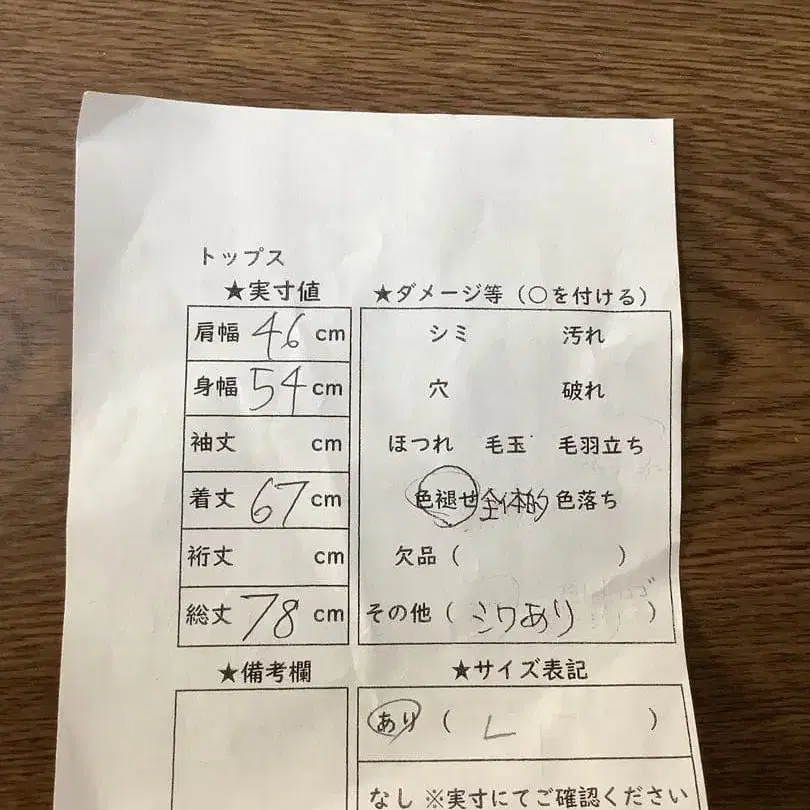 トップス
★実寸値
肩幅 46 cm
身幅 54 cm
袖丈 cm
着丈 67 cm
裄丈 cm
総丈 78 cm
★ダメージ等（○を付ける）
シミ 汚れ
穴 破れ
ほつれ 毛玉 毛羽立ち
色褪せ 全体的 色落ち
欠品（ ）
その他（ シワあり ）
★備考欄
★サイズ表記
あり（ L ）
なし ※実寸にてご確認ください